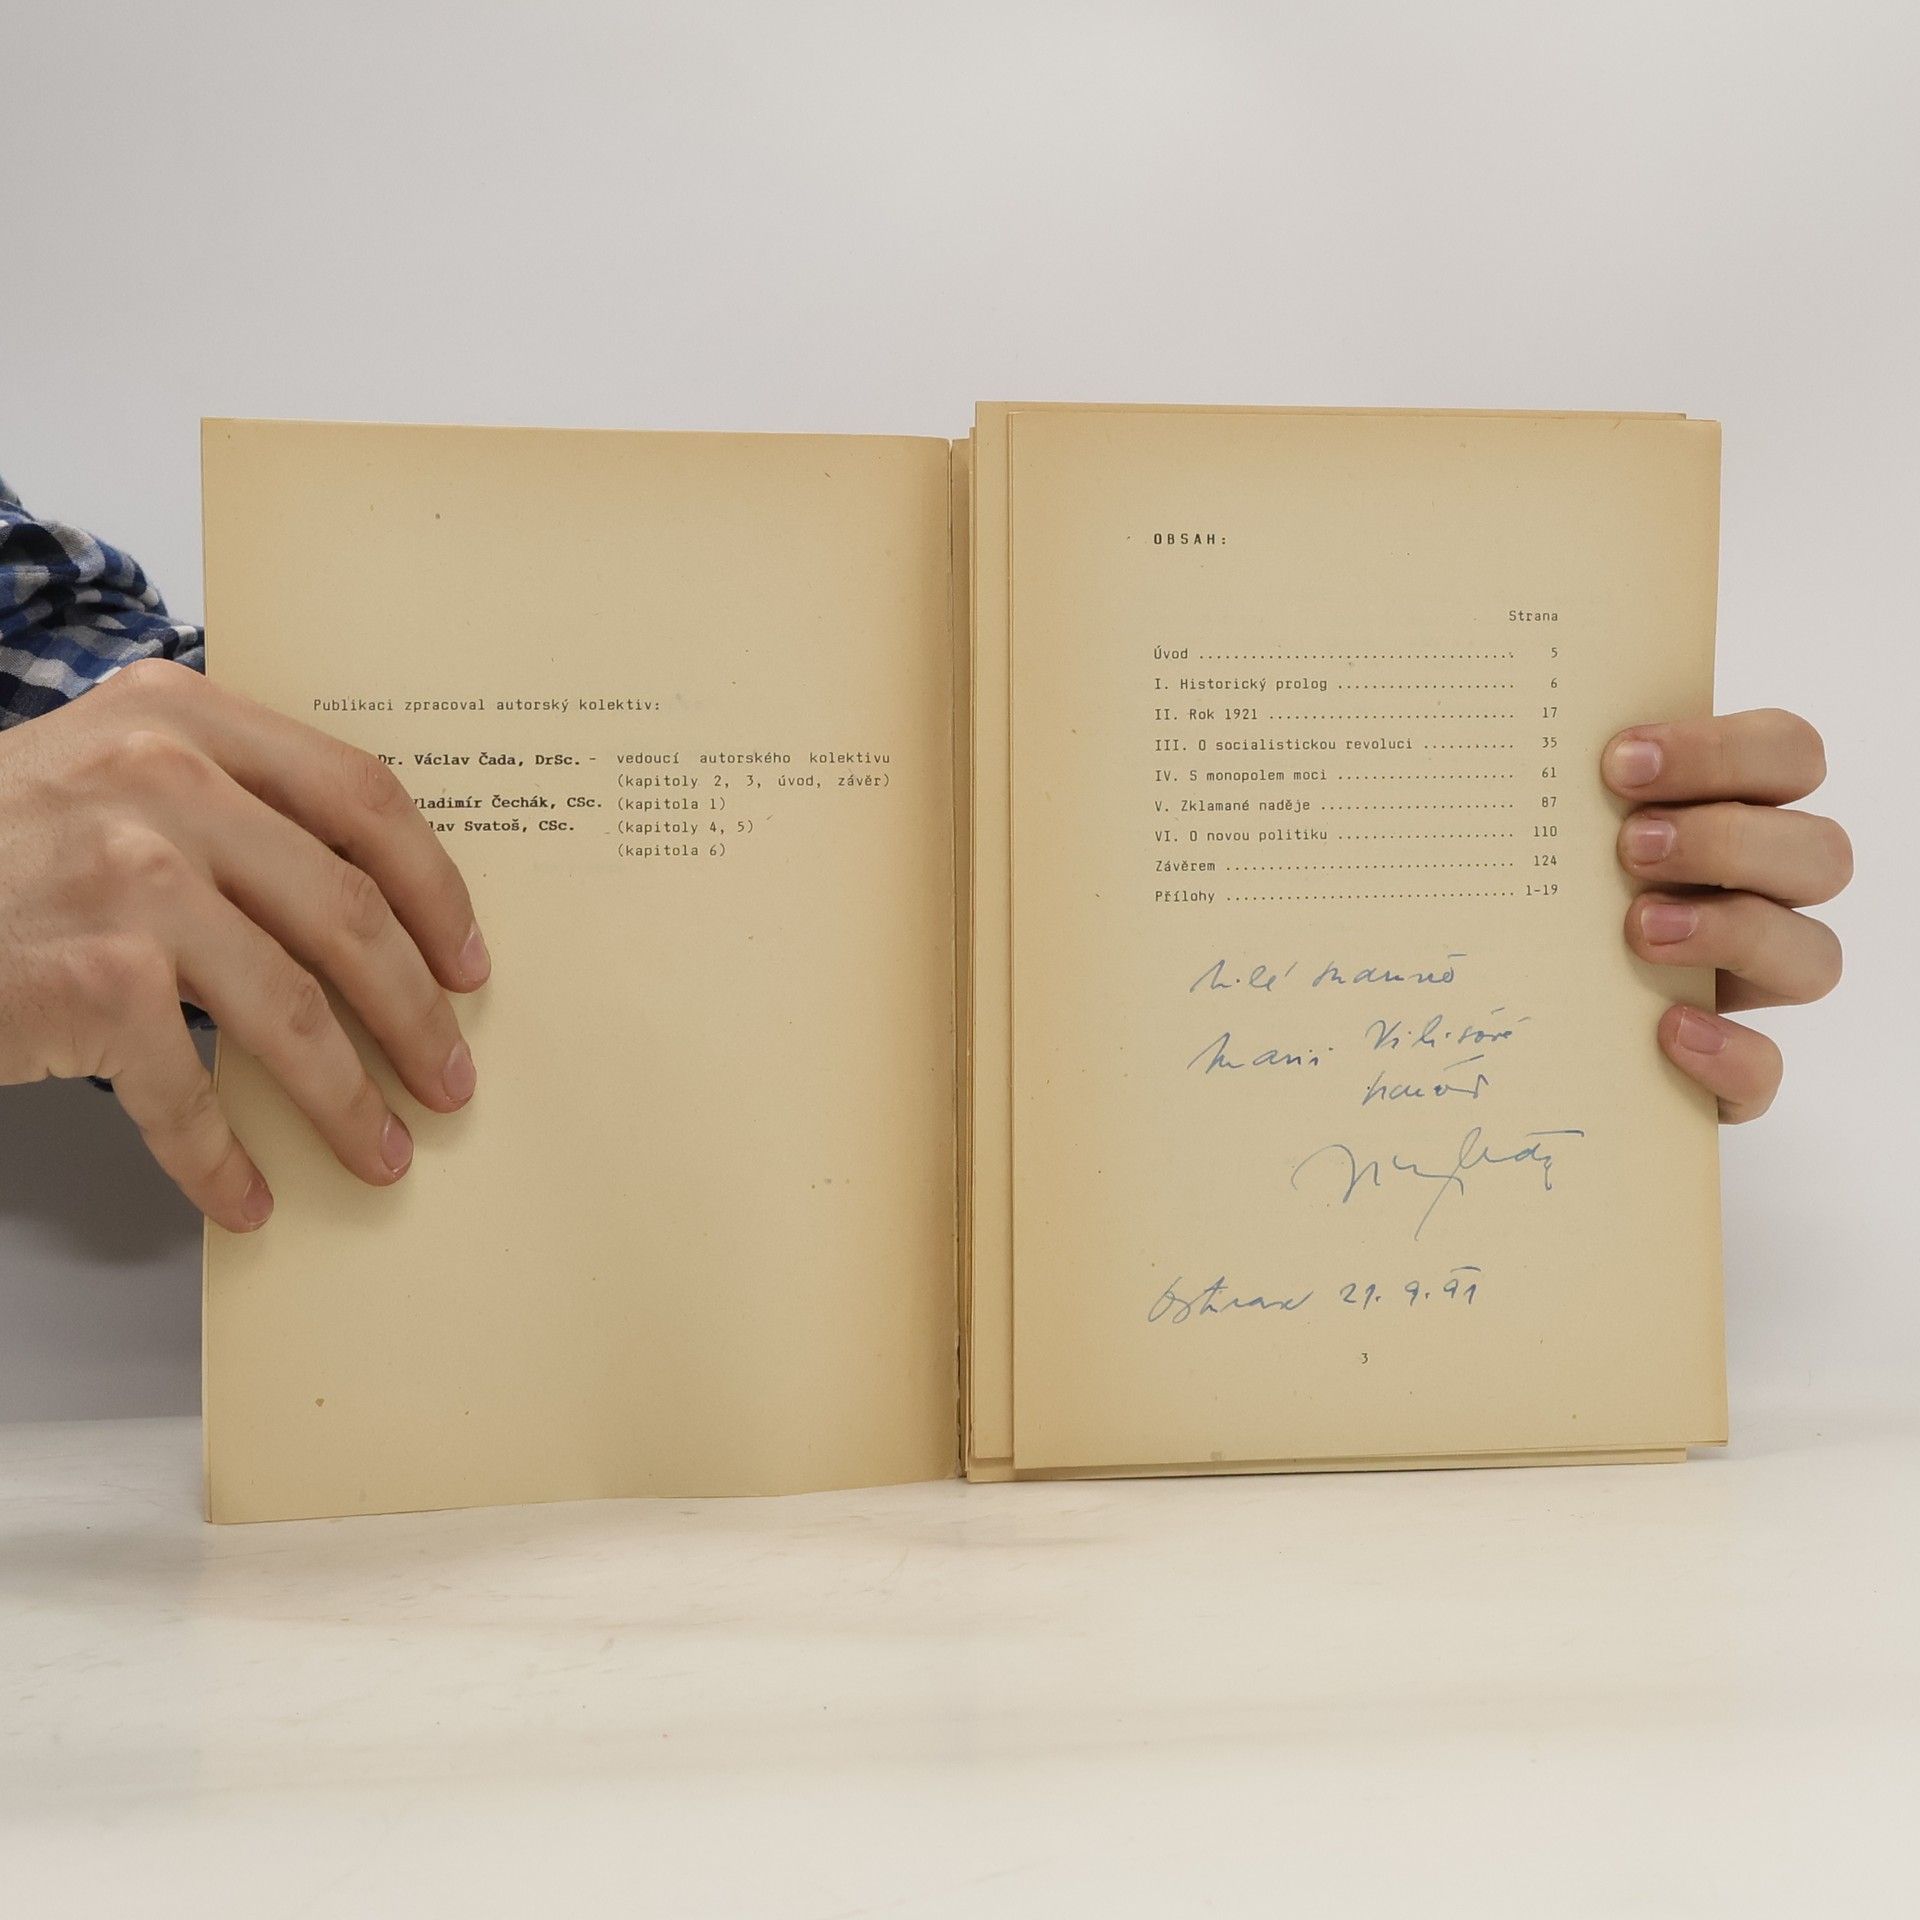 Publikaci zpracoval autorský kolektiv:
Dr. Václav Čada, DrSc. - vedoucí autorského kolektivu
(kapitoly 2, 3, úvod, závěr)
Vladimír Čechák, CSc. (kapitola 1)
lav Svatoš, CSc. (kapitoly 4, 5)
(kapitola 6)
OBSAH:
Strana
Úvod .................................... 5
I. Historický prolog ..................... 6
II. Rok 1921 ............................. 17
III. O socialistickou revoluci ........... 35
IV. S monopolem moci ..................... 61
V. Zklamané naděje ....................... 87
VI. O novou politiku ..................... 110
Závěrem .................................. 124
Přílohy .................................. 1-19
Milé
Marii
Ostrava 21. 9. 91
3